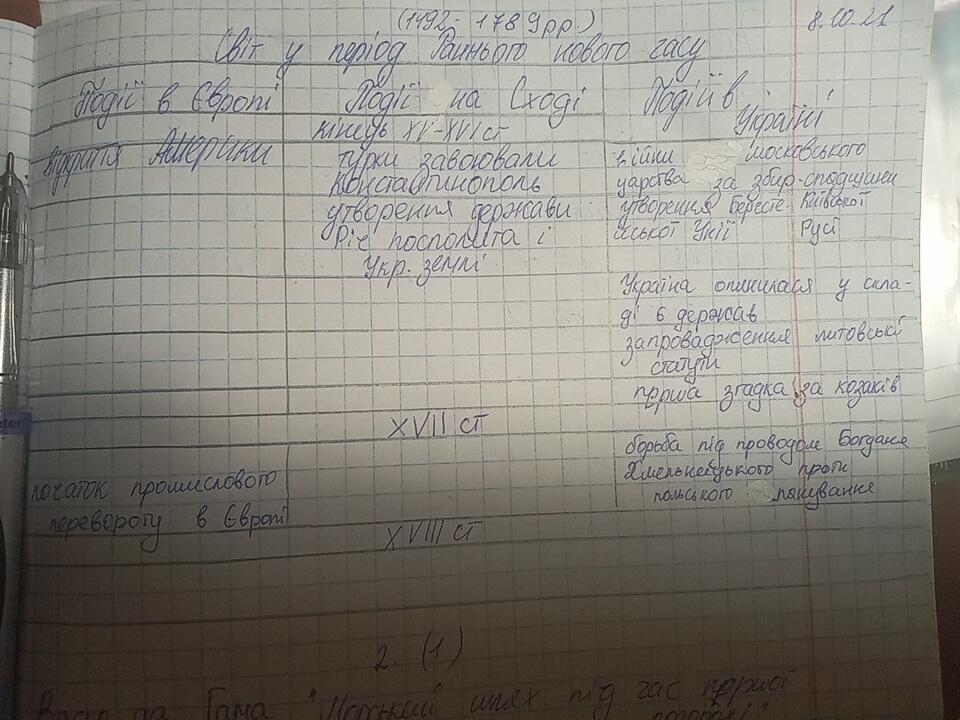 (1492 - 1789рр.)
8.10.21
Світ у період Раннього нового часу
Події в Європі
Події на Сході
Події в Україні
кінець XV-XVI ст
відкриття Америки
турки завоювали
Константинополь
утворення держави
Річ посполита і
Укр. землі
війни московського
царства за збир-сподщини
утворення Бересте- Київської
йської Унії Русі
Україна опинилася у скла-
ді 6 держав
запровадження литовські
статути
перша згадка за козаків
XVII ст
борьба під проводом Богдана
Хмельницького проти
польського панування
початок промислового
перевороту в Європі
XVIII ст
2. (1)
Васко да Гама "Морський шлях під час першої